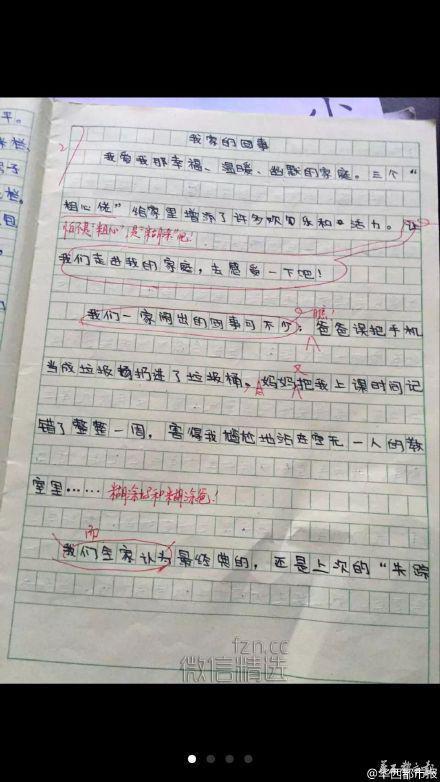 平。
我家的囧事
我有我那幸福、温暖、幽默的家庭。三个“
粗心佬”给家里增添了许多欢声乐和活力。让
怕不是“粗心”是“糊涂”吧！
我们走进我的家庭，去感受一下吧！
瞧！
我们一家闹出的囧事可不少：爸爸误把手机
又
当成垃圾扔进了垃圾桶，妈妈把我上课时间记
错了整整一周，害得我尴尬地站在空无一人的教
室里……糊涂妈和糊涂爸！
而
我们全家认为最经典的，还是上次的“失踪
fzn.cc
微信精选
@华西都市报